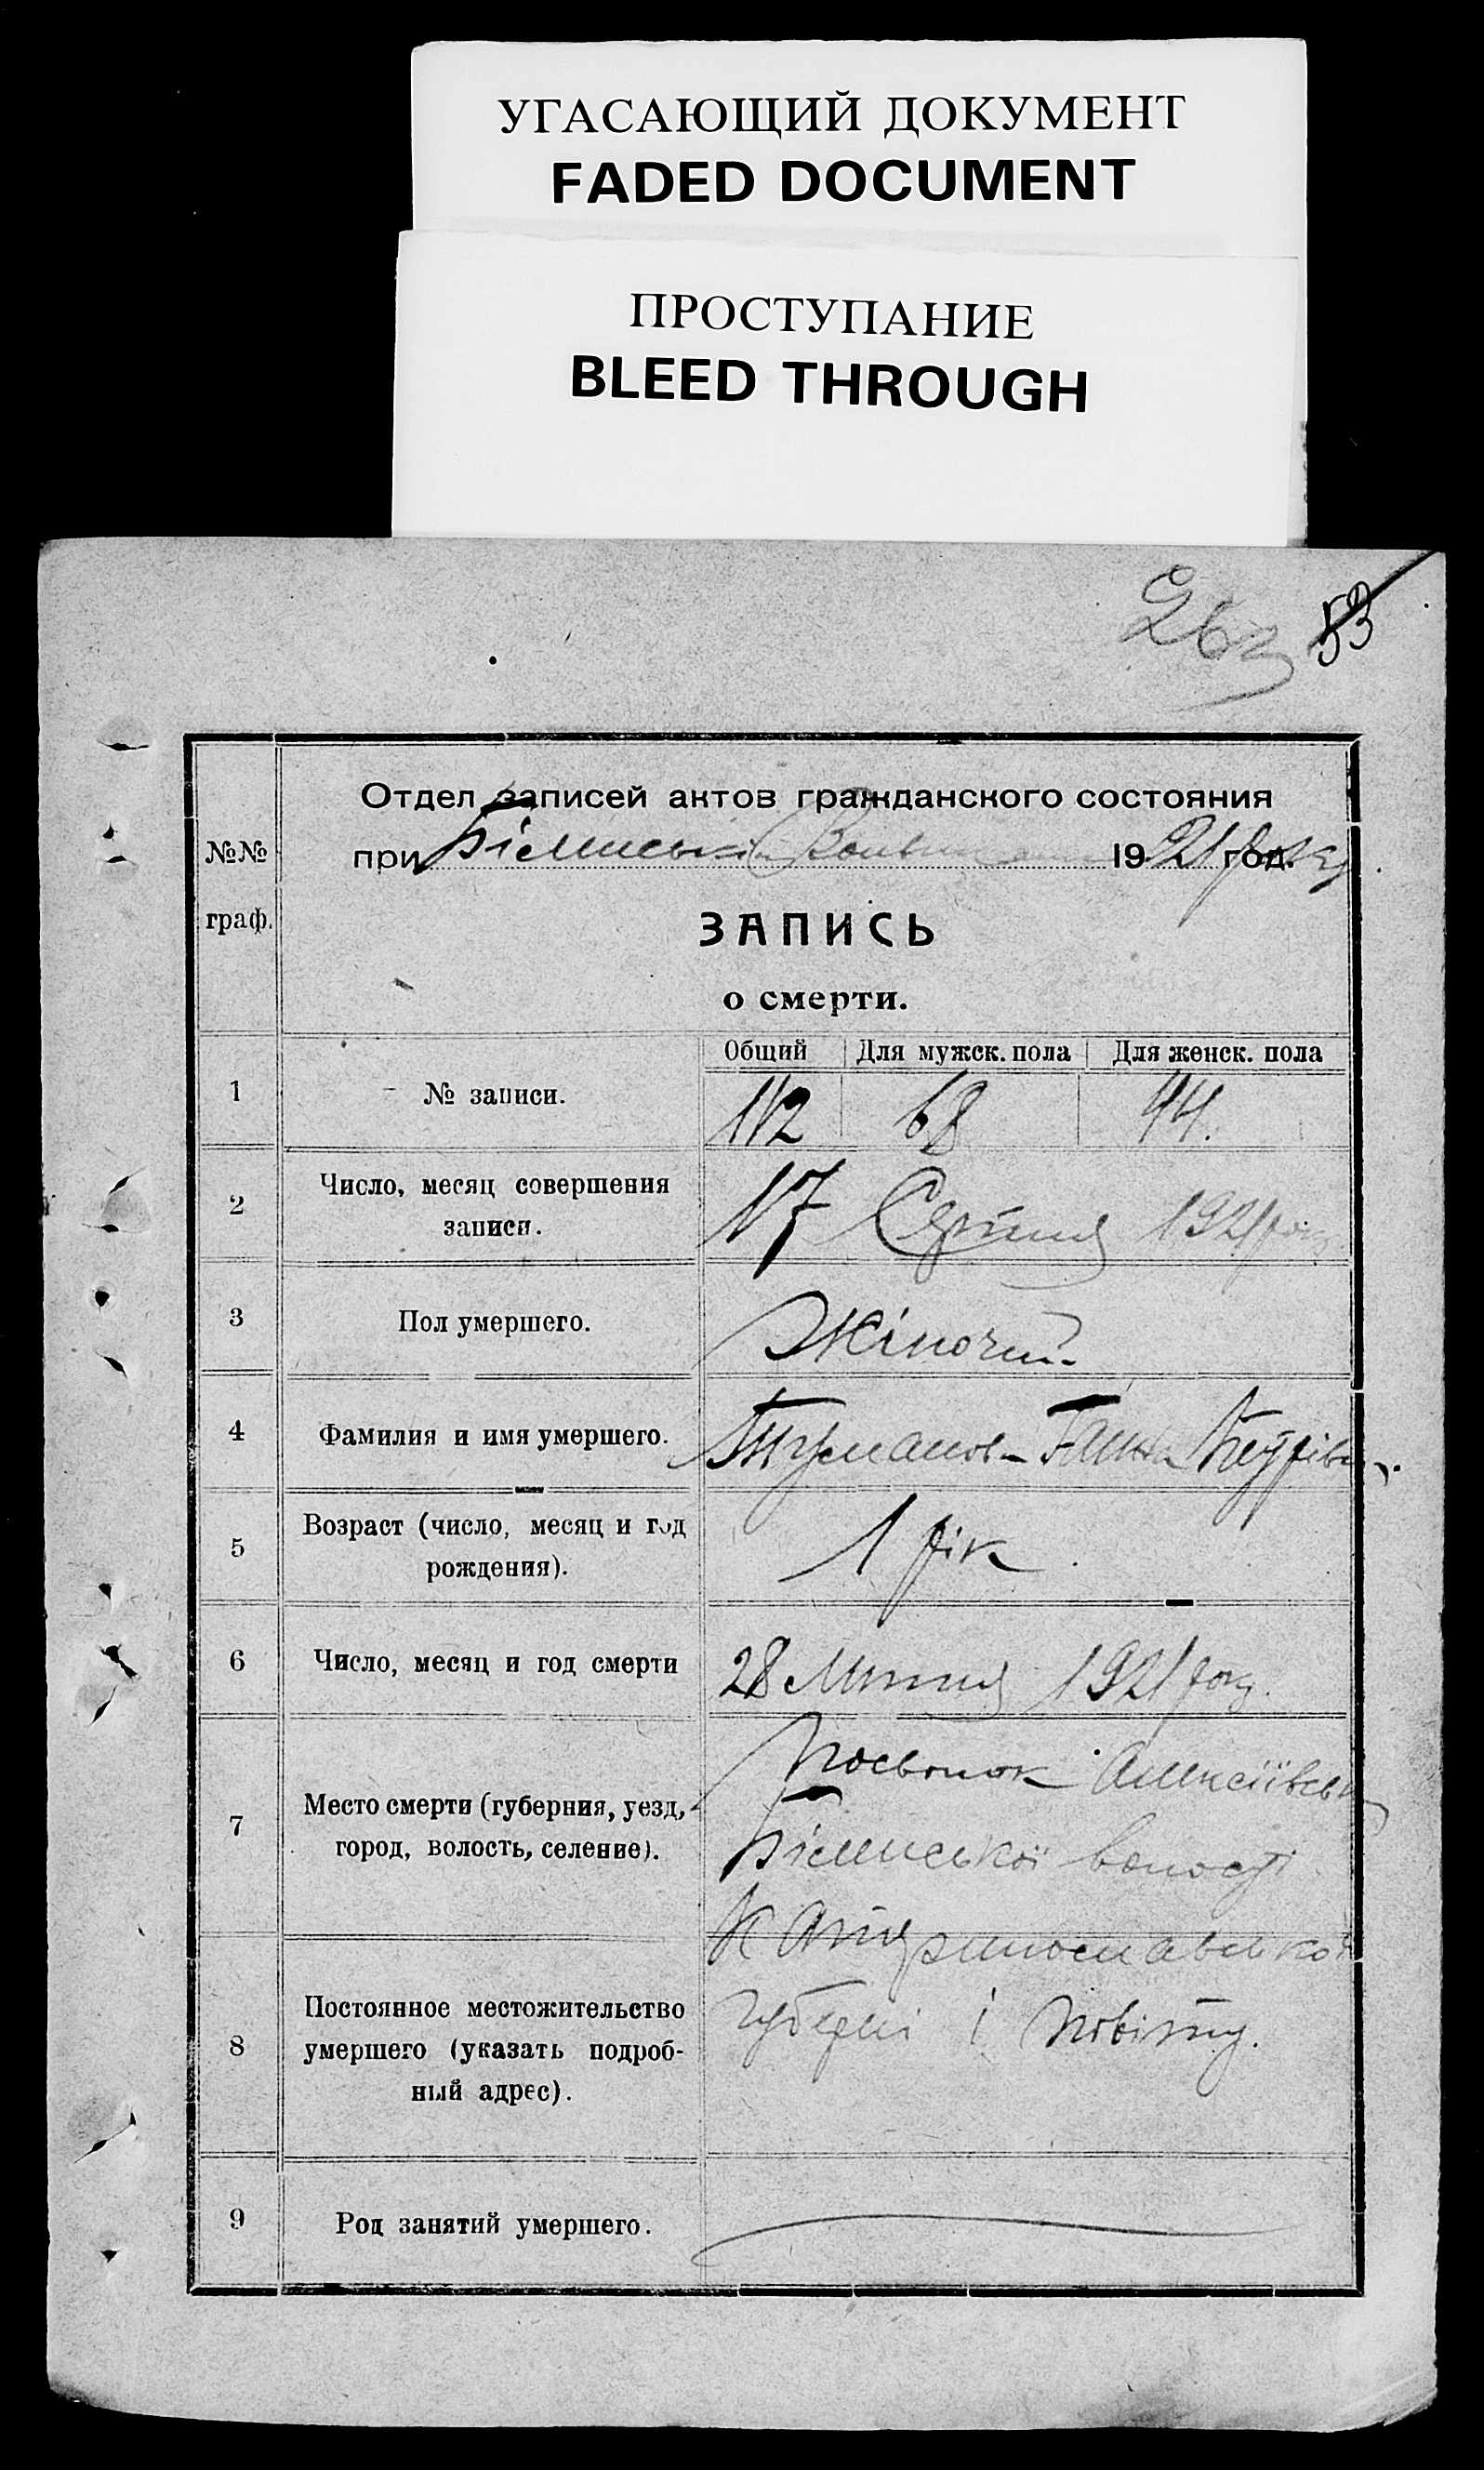 УГАСАЮЩИЙ ДОКУМЕНТ
FADED DOCUMENT
ПРОСТУПАНИЕ
BLEED THROUGH
263 53
№№ граф.
Отдел записей актов гражданского состояния
при 1921 року год.
ЗАПИСЬ
о смерти.
Общий Для мужск. пола Для женск. пола
1 № записи. 112 68 44.
2 Число, месяц совершения записи. 17 Серпня 1921 року
3 Пол умершего. Жіночий.
4 Фамилия и имя умершего. Ганна
5 Возраст (число, месяц и год рождения). 1 рік.
6 Число, месяц и год смерти 28 Липня 1921 року.
7 Место смерти (губерния, уезд, город, волость, селение).
Посьолок Алексіївськ
волості
Катеринославської
8 Постоянное местожительство умершего (указать подробный адрес).
губерні і повіту.
9 Род занятий умершего.